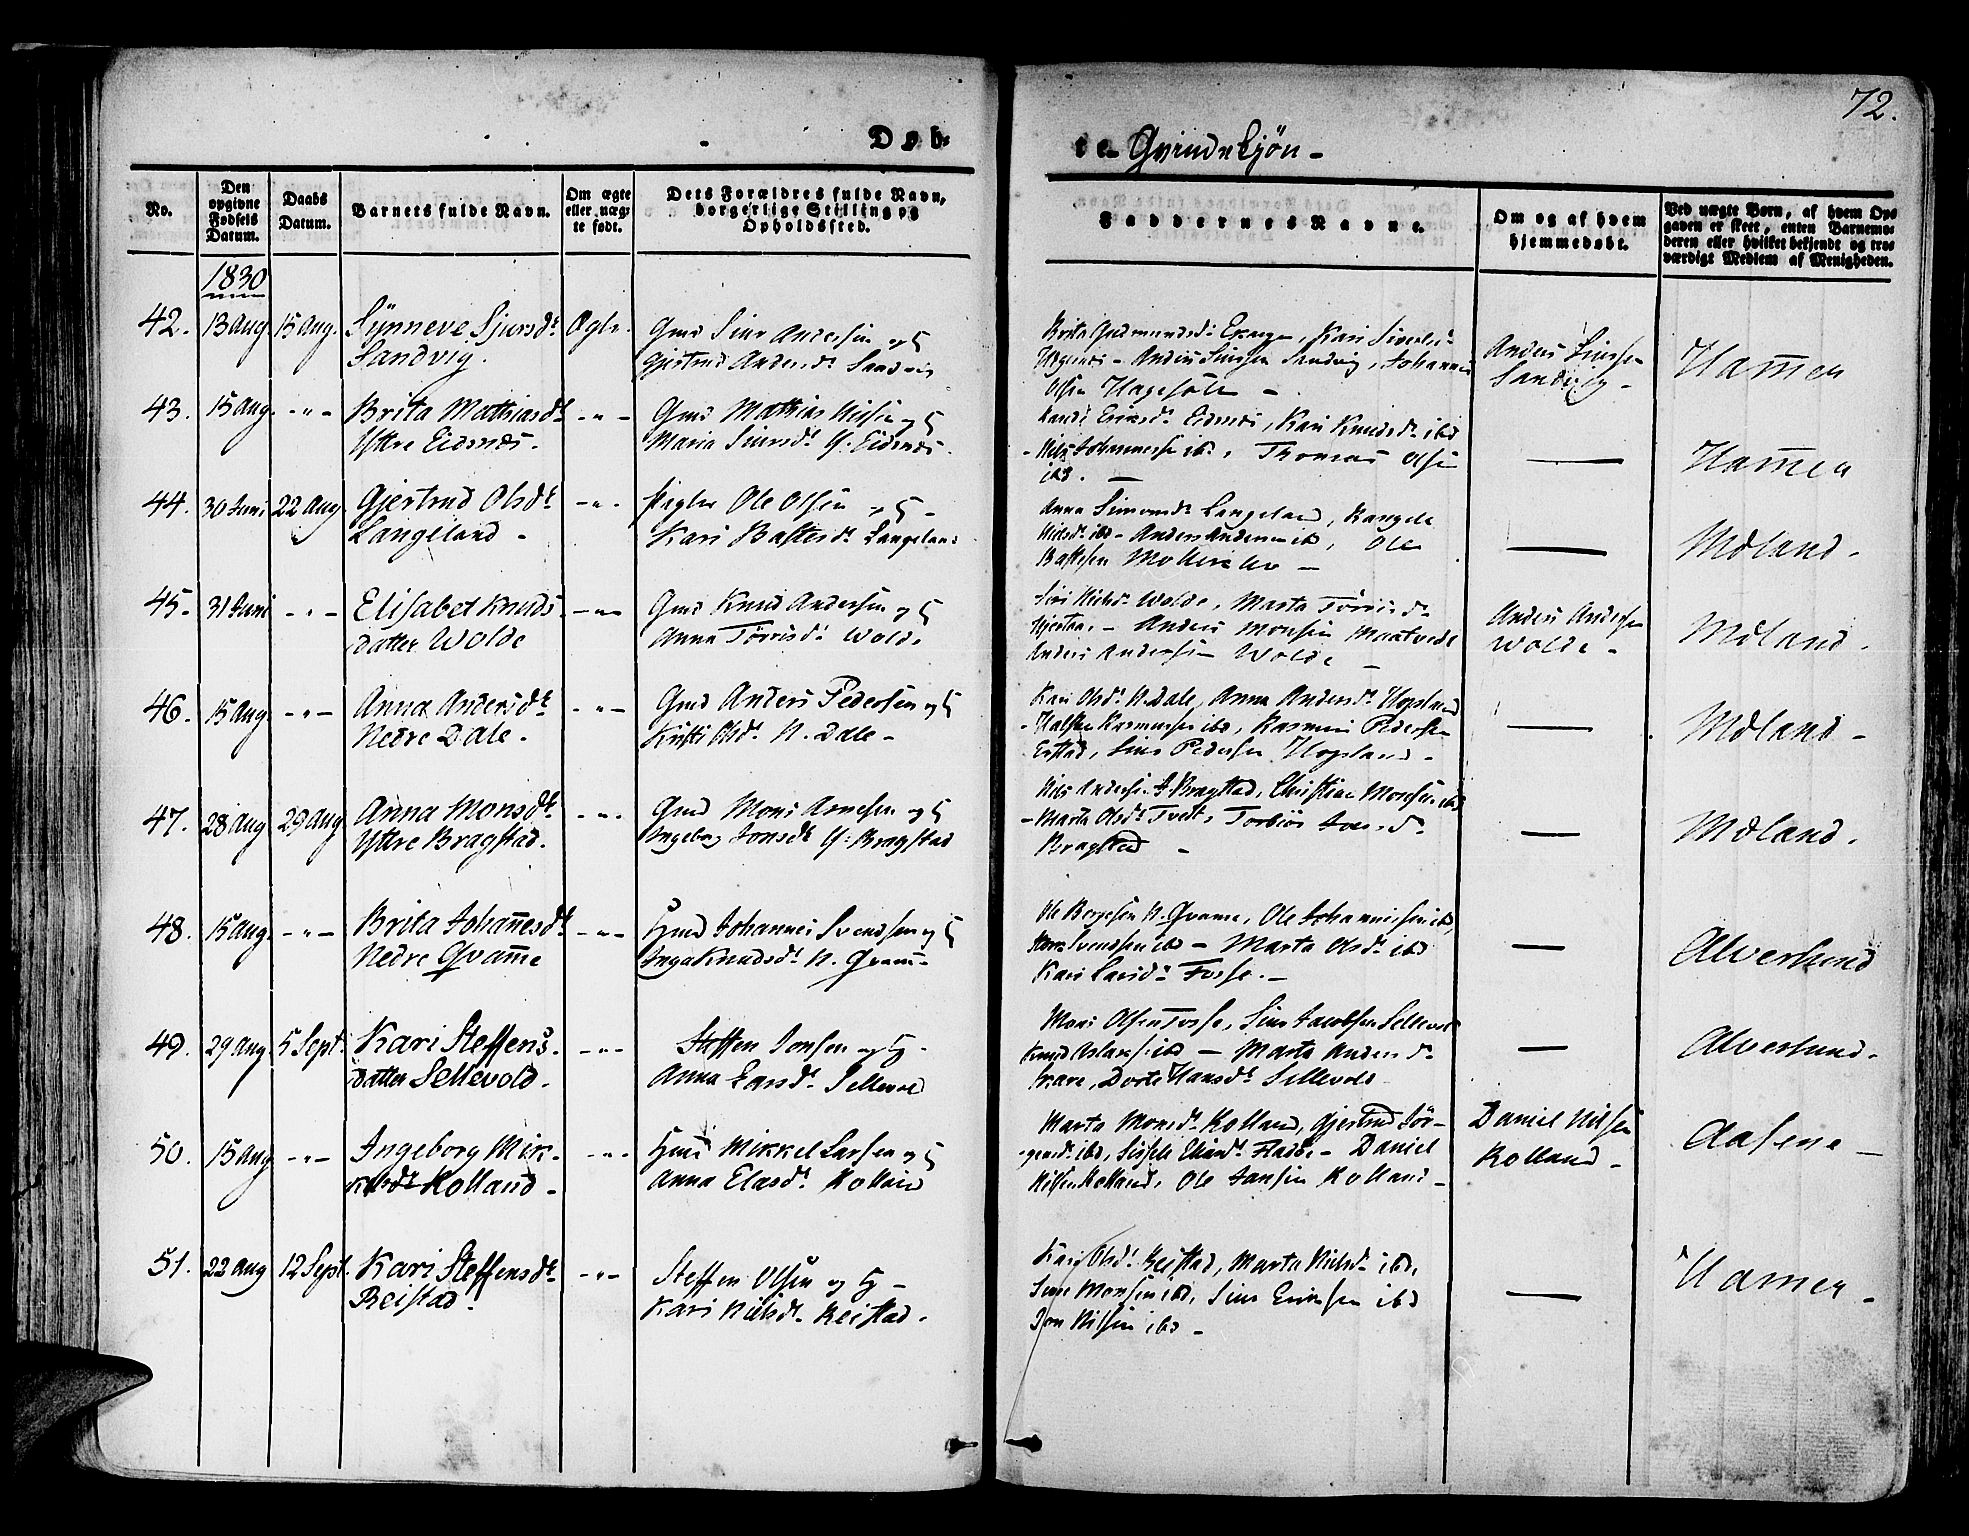 72.
Døb-
te Qvindekjøn -
No.
Den opgivne Fødsels Datum.
Daabs Datum.
Barnets fulde Navn.
Om ægte eller uægte født.
Dets Forældres fulde Navn, borgerlige Stilling og Opholdssted.
Faddernes Navne.
Om og af hvem hjemmedøbt.
Ved uægte Børn, af hvem Opgaven er skeet, enten Barnemoderen eller hvilket bekjendt og troværdigt Medlem af Menigheden.
1830
42. 13 Aug. 15 Aug. Synneve Sjursdt. Ægte.
Sandvig.
Gmd Siur Andersen og H
Gjertrud Andersdt. Sandvig
Brita Gudmundsd. Kari Siversd.
Anders Siursen Sandvig, Johannes
Olsen Hagesæter -
Anders Siursen
Sandvig -
Hammer
43. 15 Aug. - " - Brita Mathiasdt. - " -
Yttre Eidsnes.
Gmd Mathias Nilsen og H
Maria Siursdt. Y. Eidsnes.
Eriksdt. Eidsnes, Kari Knudsdt. ibd
- Nils Johannessen ibd, Thomas Olsen
ibd. -
Hammer
44. 30 Juni 22 Aug. Gjertrud Olsdt. - " -
Langeland -
Ole Olsen og H -
Kari Bastesdt. Langeland
Anna Simonsdt. Langeland, Rangele
Nielsdt. ibd - Anders Andersen ibd, Ole
Bastesen -
Mdland -
45. 31 Juni - " - Elisabet Knuds- - " -
datter Wolde
Gmd Knud Andersen og H
Anna Tørrisdt. Wolde
Siri Nielsdt. Wolde, Marta Tørrisdt.
Hjertaas - Anders Monsen Maatvedt
Anders Andersen Wolde -
Anders Andersen
Wolde -
Mdland.
46. 15 Aug. - " - Anna Andersdt. - " -
Nedre Dale.
Gmd Anders Pedersen og H
Kristi Olsdt. N. Dale -
Kari Olsdt. N. Dale, Anna Andersdt. Hopland
- Rasmussen ibd, Rasmus Pedersen
Sius Pedersen Hopland -
Mdland -
47. 28 Aug 29 Aug Anna Monsdt. - " -
Yttre Bragstad.
Gmd Mons Arnesen og H
Ingeborg Jonsdt. Y: Bragstad
Nils Andersen Y Bragstad, Christian Monsen ibd
- Marta Olsdt. Tvedt,
Bragstad -
Mdland.
48. 15 Aug. - " - Brita Johannesdt. - " -
Nedre Qvamme
Hmd Johannes Svendsen og H
Inga Knudsdt. N. Qvam-
Ole Børgesen N. Qvamme, Ole Johannessen ibd,
Svendsen ibd - Marta Olsdt. ibd
Kari Larsdt. Fosse. -
Alversund
49. 29 Aug. 5 Sept. Kari Steffens- - " -
datter Sellevold.
Steffen Jonsen og H -
Anna Larsdt. Sellevold
Mons Olsen Fosse, Sius Jacobsen Sellevold
Knud Aslaksen ibd - Marta Andersdt.
Dorte Hansdt. Sellevold
Alversund.
50. 15 Aug - " - Ingeborg Mik- - " -
kelsdt Kolland -
Hmd Mikkel Larsen og H
Anna Eliasdt. Kolland
Marta Monsdt. Kolland, Gjertrud Jør-
gensdt. ibd, Sissele Eliasdt. - Daniel
Nilsen Kolland, Ole Jansen Kolland -
Daniel Nilsen
Kolland -
Aasene -
51. 22 Aug 12 Sept. Kari Steffensdt. - " -
Reistad.
Steffen Olsen og H -
Kari Nielsdt. Reistad.
Kari Olsdt. Reistad, Marta Nielsdt. ibd,
Monsen ibd, Sius Eriksen ibd
Jon Nilsen ibd -
Hamer -